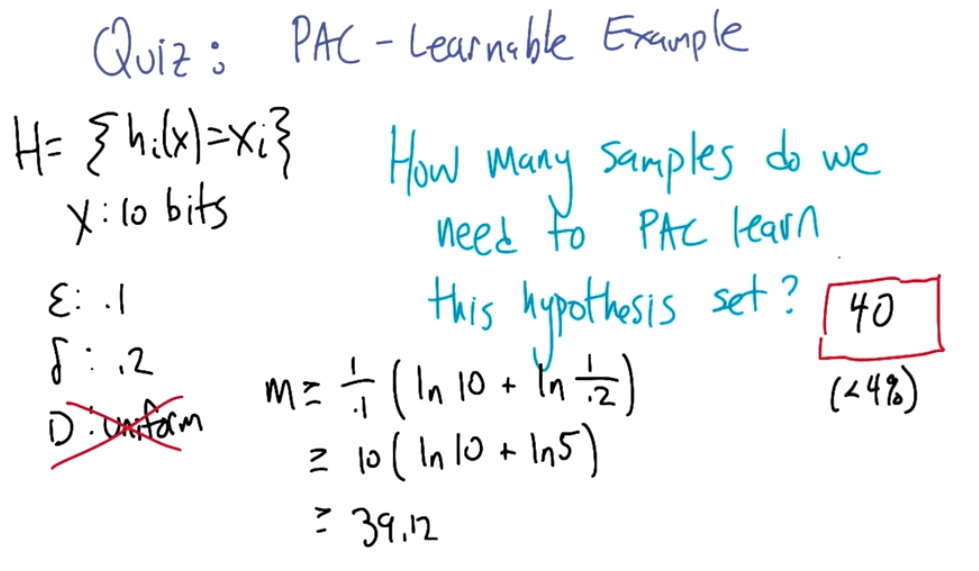 Quiz: PAC-Learnable Example
H= {hᵢ(x)=xᵢ}
X: 10 bits
ε: .1
δ: .2
D: uniform
How many samples do we
need to PAC learn
this hypothesis set?
40
(<4%)
m ≥ 1/.1 (ln 10 + ln 1/.2)
≥ 10 (ln 10 + ln 5)
≥ 39.12